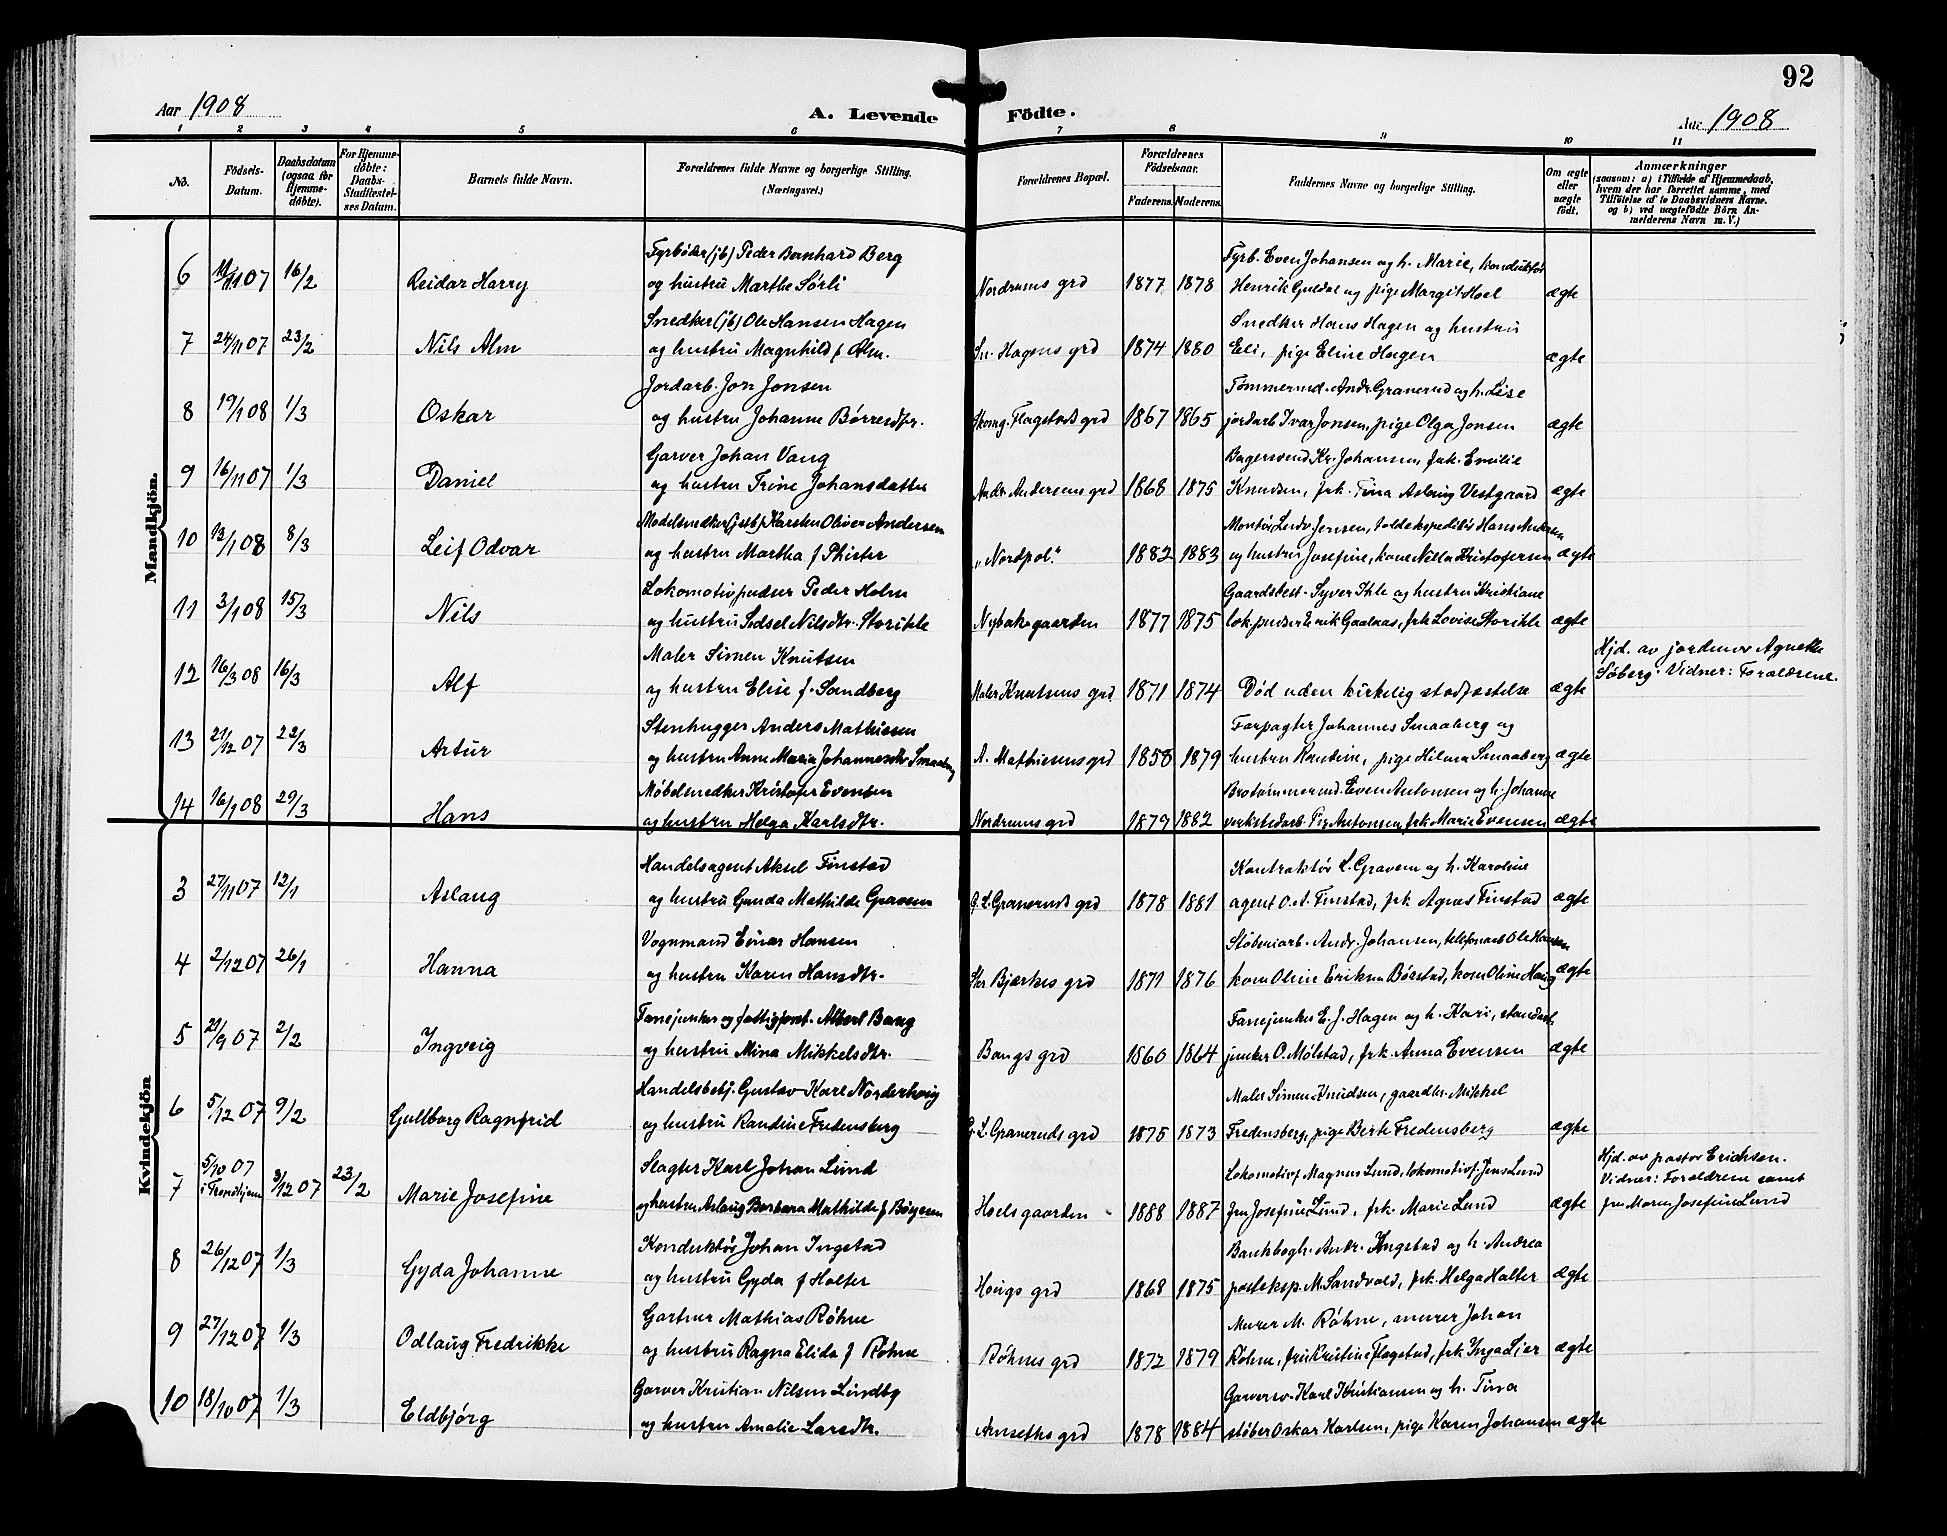 92
Aar 1908
A. Levende Födte.
Aar 1908
1 2 3 4 5 6 7 8 9 10 11
No.
Födsels-Datum.
Daabsdatum (ogsaa for Hjemme-döbte).
For Hjemme-döbte: Daabs-Stadfæstel-ses Datum.
Barnets fulde Navn.
Forældrenes fulde Navne og borgerlige Stilling. (Næringsvei.)
Forældrenes Bopæl.
Forældrenes Födselsaar.
Faderens. Moderens.
Faddernes Navne og borgerlige Stilling.
Om ægte eller uægte födt.
Anmærkninger (saasom: a) i Tilfælde af Hjemmedaab, hvem der har forrettet samme, med Tilföielse af to Daabsvidners Navne, og b) ved uægtefödte Börn Anmelderens Navn m. V.)
Mandkjön.
Fyrbøder (jb) Peder Bernhard Berg Fyrb. Even Johansen og h. Marie, konduktør
6 /11 07 16/2 Reidar Harry og hustru Marthe Sørli Nordrums grd 1877 1878 Henrik Guldal og pige Margit Hoel ægte
Snedker (jb) Ole Hansen Hagen Snedker Hans Hagen og hustru
7 24/11 07 23/2 Nils Alm og hustru Magnhild f Alm. Sn. Hagens grd 1874 1880 Eli, pige Eline Hagen ægte
Jordarb. Jon Jonsen Tømmermd. Andr. Granerud og h. Lise
8 19/1 08 1/3 Oskar og hustru Johanne Børresdtr. Skomg. Flagstads grd 1867 1865 jordarb Ivar Jonsen, pige Olga Jonsen ægte
Garver Johan Vang Bagersvend Kr. Johansen, frk. Emilie
9 16/11 07 1/3 Daniel og hustru Trine Johansdatter Andr. Andersens grd 1868 1875 Knudsen, frk. Tina Aslaug Vestgaard ægte
Modelsnedker (jstb) Karsten Oliver Andersen Montør Ludv. Jensen, toldekspeditør Hans Andersen
10 12/1 08 8/3 Leif Odvar og hustru Martha f Phister „Nordpol“ 1882 1883 og hustru Josefine, kone Nilla Kristofersen ægte
Lokomotivpudser Peder Holm Gaardsbest. Syver Ihle og hustru Kristiane
11 3/1 08 15/3 Nils og hustru Sedsel Nilsdtr. Storihle Nybakgaarden 1877 1875 lok.pudser Erik Gaalaas, frk Lovise Storihle ægte
Maler Simen Knutsen Hjd. av jordmor Agnethe
12 16/3 08 16/3 Alf og hustru Elise f. Sandberg Maler Knutsens grd 1871 1874 Død uden kirkelig stadfæstelse ægte Søberg. Vidner: Forældrene.
Stenhugger Anders Mathiesen Forpagter Johannes Smaaberg og
13 21/12 07 22/3 Artur og hustru Anne Marie Johannesdtr Smaaberg A. Mathiesens grd 1858 1879 hustru Randine, pige Hilma Smaaberg ægte
Møbelsnedker Kristofer Evensen Brotømmermd. Even Antonsen og h. Johanne
14 16/1 08 29/3 Hans og hustru Helga Karlsdtr. Nordrums grd 1879 1882 verkstedarb. Antonsen, frk Marie Evensen ægte
Kvindekjön
Handelsagent Aksel Finstad Kontraktør L. Gravem og h. Karoline
3 27/11 07 12/1 Aslaug og hustru Gunda Mathilde Gravem G. L. Graneruds grd 1878 1881 agent O. A. Finstad, frk Agnes Finstad ægte
Vognmand Einar Hansen Støberiarb. Andr. Johansen, telefonarb Ole Hansen
4 2/12 07 26/1 Hanna og hustru Karen Hansdtr. Bjærkes grd 1871 1876 kone Oline Eriksen Børstad, kone Oline Haug ægte
Fanejunker og fattigforst. Albert Bang Fanejunker E. J. Hagen og h. Kari, standart
5 29/9 07 2/2 Ingveig og hustru Mina Mikkelsdtr. Bangs grd 1860 1864 junker O. Mølstad, frk. Anna Evensen ægte
Handelsbetj. Gustav Karl Norderhaug Maler Simen Knudsen, gaardbr. Mikkel
6 5/12 07 9/2 Gullborg Ragnfrid og hustru Randine Fredensberg G. L. Graneruds grd 1875 1873 Fredensberg, pige Berte Fredensberg ægte
5/10 07 Slagter Karl Johan Lund Lokomotivf Magnus Lund, lokomotivf. Jens Lund Hjd. av pastor Erichsen.
7 i Trondhjem 3/12 07 23/2 Marie Josefine og hustru Aslaug Barbara Mathilde f Børgesen Hoelsgaarden 1888 1887 fru Josefine Lund, frk. Marie Lund ægte Vidner: Forældrene samt
fru Maren Josefine Lund
Konduktør Johan Ingstad Bankbogh. Andr. Ingstad og h. Andrea
8 26/12 07 1/3 Gyda Johanne og hustru Gyda f Holter Haugs grd 1868 1875 posteksp. M. Sandvold, frk. Helga Holter ægte
Gartner Mathias Røhne Murer M. Røhne, murer Johan
9 27/12 07 1/3 Odlaug Fredrikke og hustru Ragna Elida f Røhne Røhnes grd 1872 1879 Røhne, fru Kristine Flagstad, frk Inga Lier ægte
Garver Kristian Nilsen Lindby Garversv. Karl Kristiansen og h. Tina
10 18/10 07 1/3 Eldbjørg og hustru Amalie Larsdtr. Arnseths grd 1878 1884 støber Oskar Karlsen, pige Karen Johansen ægte